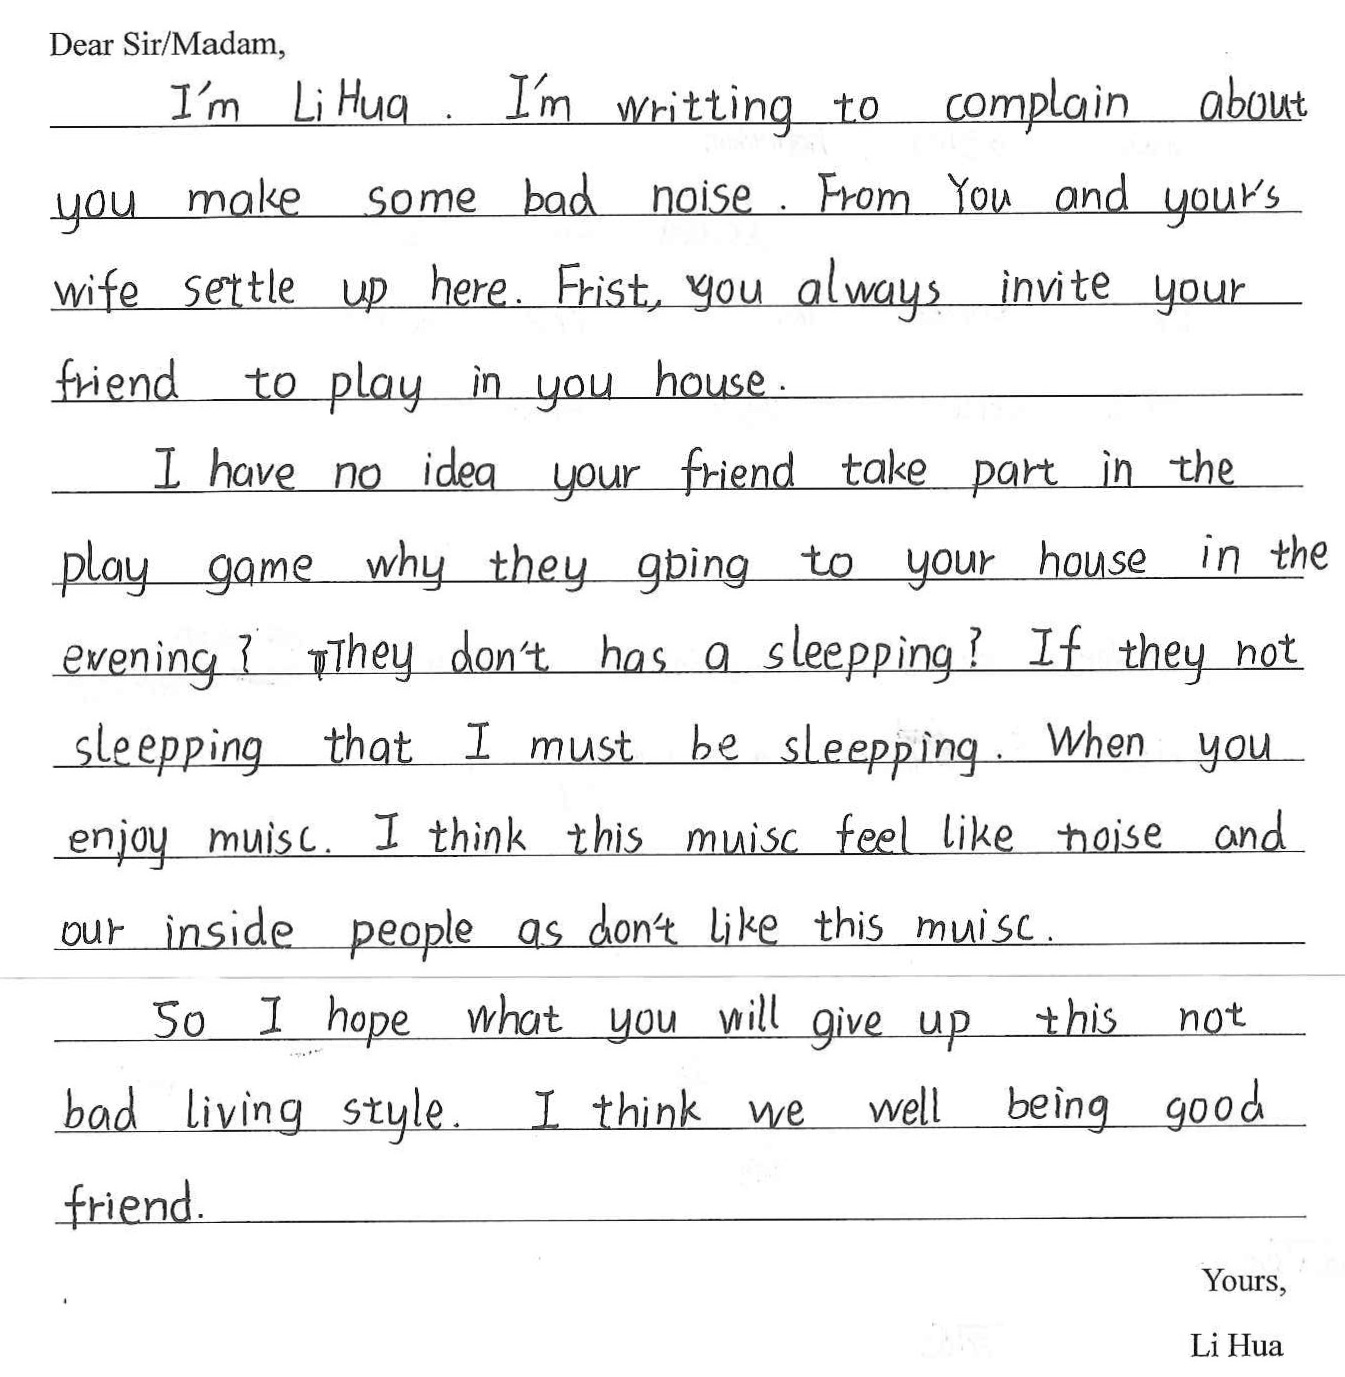 Dear Sir/Madam,
I'm Li Hua. I'm writting to complain about
you make some bad noise. From You and your's
wife settle up here. Frist, you always invite your
friend to play in you house.
I have no idea your friend take part in the
play game why they going to your house in the
evening? They don't has a sleepping? If they not
sleepping that I must be sleepping. When you
enjoy muisc. I think this muisc feel like noise and
our inside people as don't like this muisc.
So I hope what you will give up this not
bad living style. I think we well being good
friend.
Yours,
Li Hua